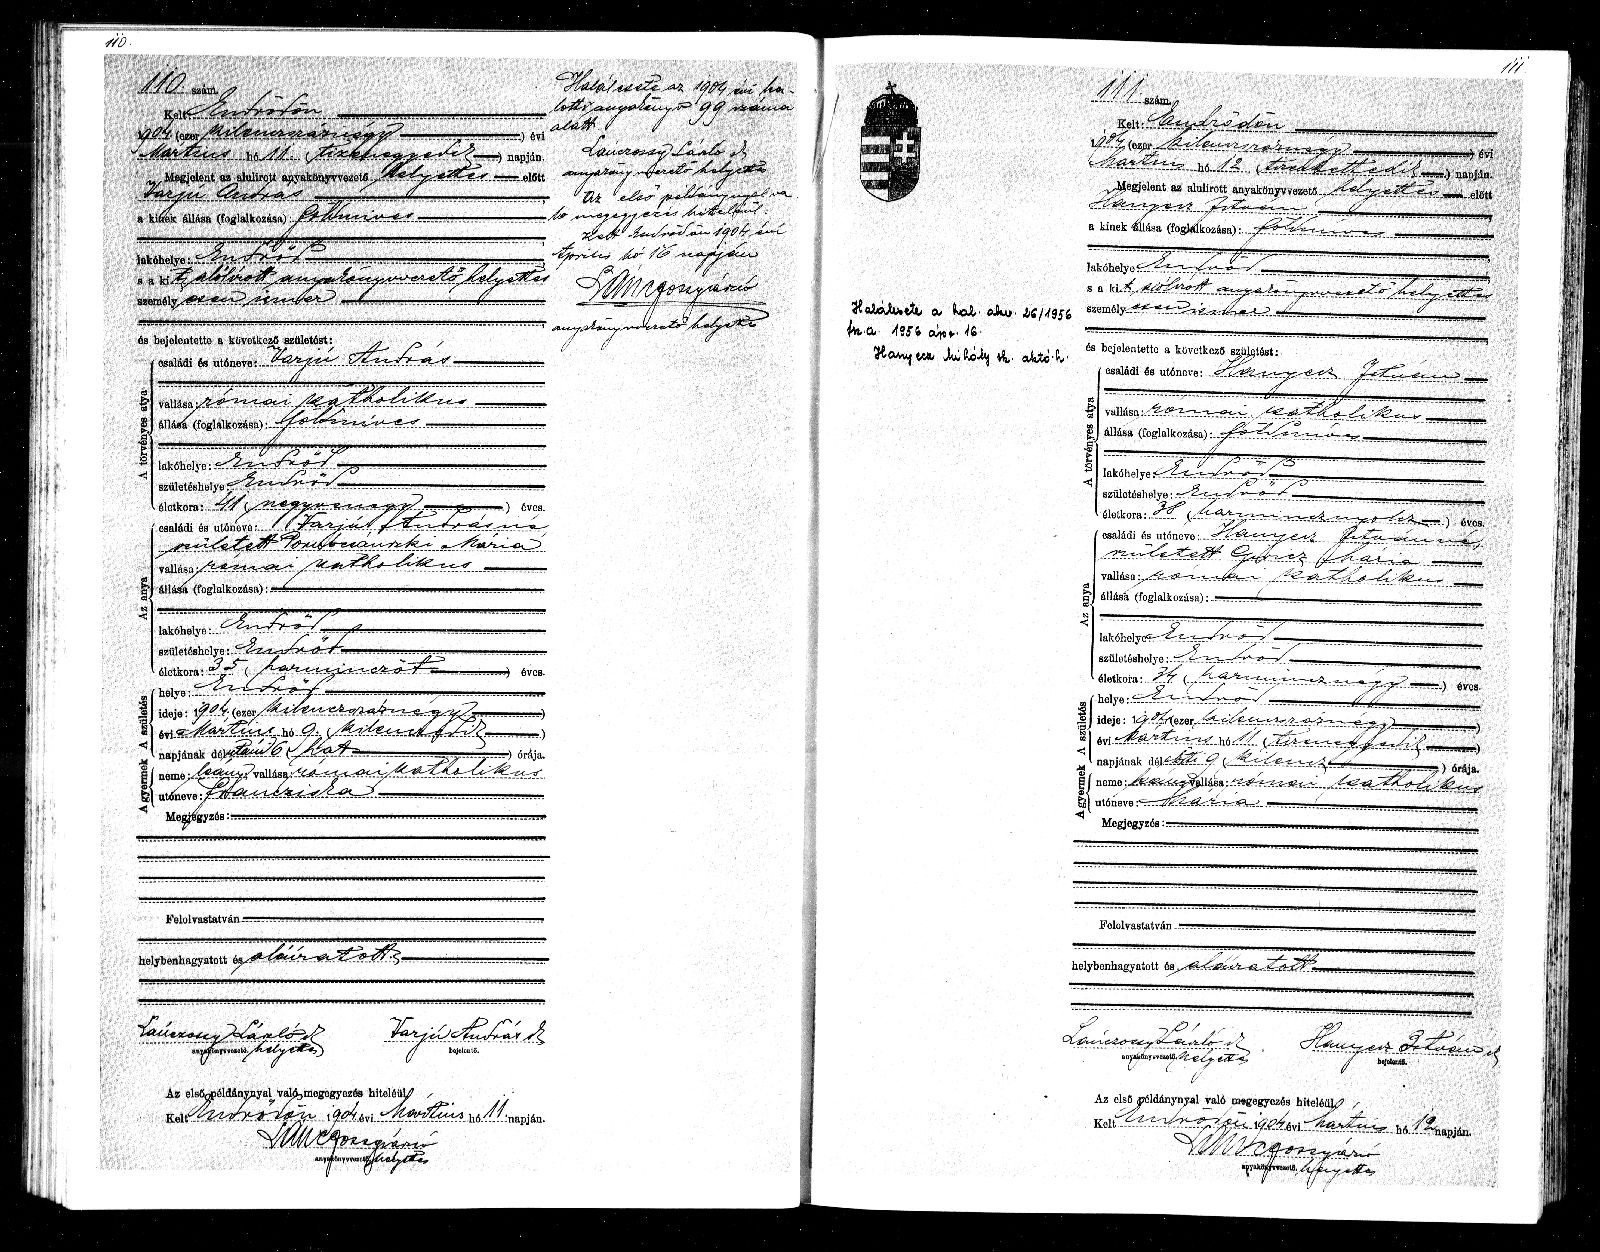 110.
110 szám.
Kelt Endrődön
1904 (ezer kilenczszáznégy) évi
Martius hó 11. (tizenegyedik) napján.
Megjelent az alulirott anyakönyvvezető helyettes előtt
Varjú András
a kinek állása (foglalkozása): földmives
lakóhelye Endrőd
s a kit alólirott anyakönyvvezető helyettes
személyesen ismer
és bejelentette a következő születést:
A törvényes atya
családi és utóneve: Varjú András
vallása: római katholikus
állása (foglalkozása): földmives
lakóhelye: Endrőd
születéshelye: Endrőd
életkora: 41 (negyvenegy) éves.
Az anya
családi és utóneve: Varjú Andrásné
született Mária
vallása: római katholikus
állása (foglalkozása):
lakóhelye: Endrőd
születéshelye: Endrőd
életkora: 35 (harminczöt) éves.
A születés
helye: Endrőd
ideje: 1904 (ezer kilenczszáznégy)
évi Martius hó 9. (kilenczedik)
napjának délutáni 6 (hat) órája.
A gyermek
neme: leány; vallása: római katholikus
utóneve: Francziska
Megjegyzés:
Felolvastatván
helybenhagyatott és aláiratott
Lánczosy László sk Varjú András sk
anyakönyvvezető, helyettes bejelentő.
Az első példánynyal való megegyezés hiteléül.
Kelt Endrődön 1904 évi Martius hó 11 napján.
anyakönyvvezető, helyettes
Halálesete az 1904 évi ha-
lotti anyakönyv 99 száma
alatt.
Lánczosy László sk
anyakönyvvezető helyettes
Az első példánynyal va-
ló megegyezés hiteléül.
Kelt Endrődön 1904. évi
Április hó 16 napján
anyakönyvvezető helyettes
111
Halálesete a hal. akv. 26/1956
fsz. a 1956 ápr. 16.
Hanyecz Mihály sk. aktő. h.
111. szám.
Kelt: Endrődön
1904 (ezer kilenczszáznégy) évi
Martius hó 12 (tizenkettedik) napján.
Megjelent az alulirott anyakönyvvezető helyettes előtt
Hanyecz István
a kinek állása (foglalkozása): földmives
lakóhelye Endrőd
s a kit alólirott anyakönyvvezető helyettes
személyesen ismer
és bejelentette a következő születést:
A törvényes atya
családi és utóneve: Hanyecz István
vallása: római katholikus
állása (foglalkozása): földmives
lakóhelye: Endrőd
születéshelye: Endrőd
életkora: 38 (harmincznyolcz) éves.
Az anya
családi és utóneve: Hanyecz Istvánné,
született Mária
vallása: római katholikus
állása (foglalkozása):
lakóhelye Endrőd
születéshelye: Endrőd
életkora: 34 (harmincznégy) éves.
A születés
helye: Endrőd
ideje: 1904 (ezer kilenczszáznégy)
évi Martius hó 11 (tizenegyedik)
napjának délelőtti 9 (kilencz) órája.
A gyermek
neme: leány; vallása: római katholikus
utóneve: Mária
Megjegyzés:
Felolvastatván
helybenhagyatott és aláiratott
Lánczosy László sk Hanyecz István sk
anyakönyvvezető, helyettes bejelentő.
Az első példánynyal való megegyezés hiteléül.
Kelt Endrődön 1904 évi Martius hó 12 napján.
anyakönyvvezető, helyettes